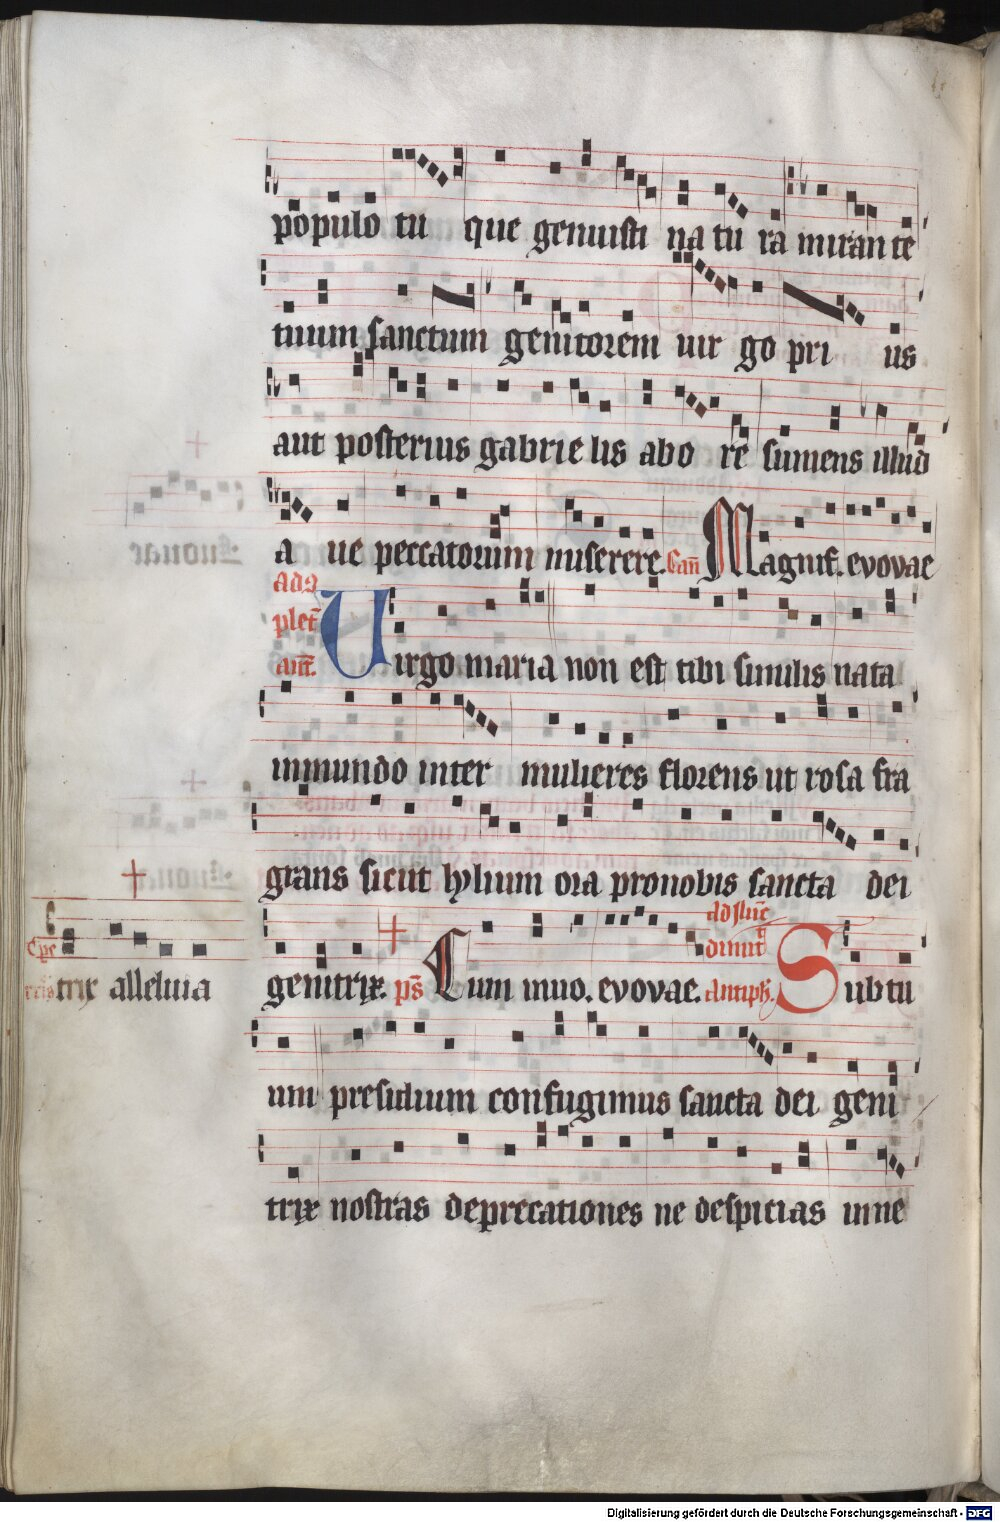 populo tu que genuisti na tu ra miran te
tuum sanctum genitorem uir go pri us
aut posterius gabrie lis abo re sumens illud
a ue peccatorum miserere. Can̄ Magnif. evovae
ad 9
plet̄
ant̄. Uirgo maria non est tibi similis nata
inmundo inter mulieres florens ut rosa fra
grans sicut lylium ora pronobis sancta dei
ad nūc
dimit̄
trix alleluia
genitrix. ps̄ Cum inuo. evovae. antiph. Subtu
um presidium confugimus sancta dei geni
trix nostras deprecationes ne despicias inne
Digitalisierung gefördert durch die Deutsche Forschungsgemeinschaft - DFG